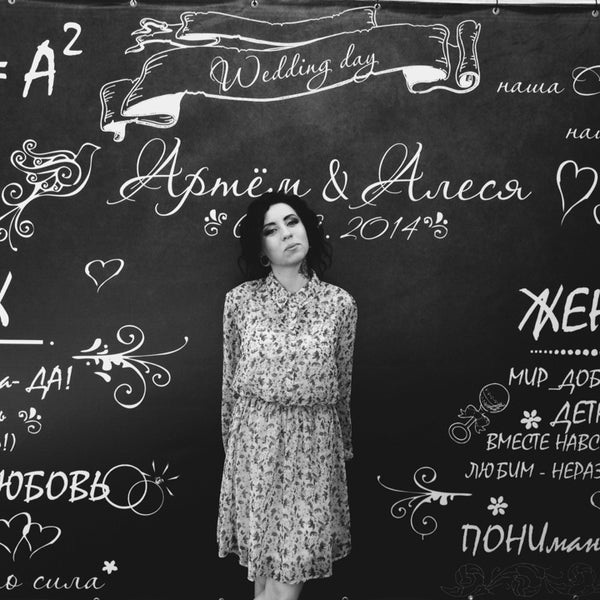 = A²
Wedding day
наша
Артём & Алеся
2014
ДА!
ЮБОВЬ
сила
ЖЕН
МИР_ДОБ
ДЕТ
ВМЕСТЕ НАВС
ЛЮБИМ - НЕРАЗ
ПОНИман